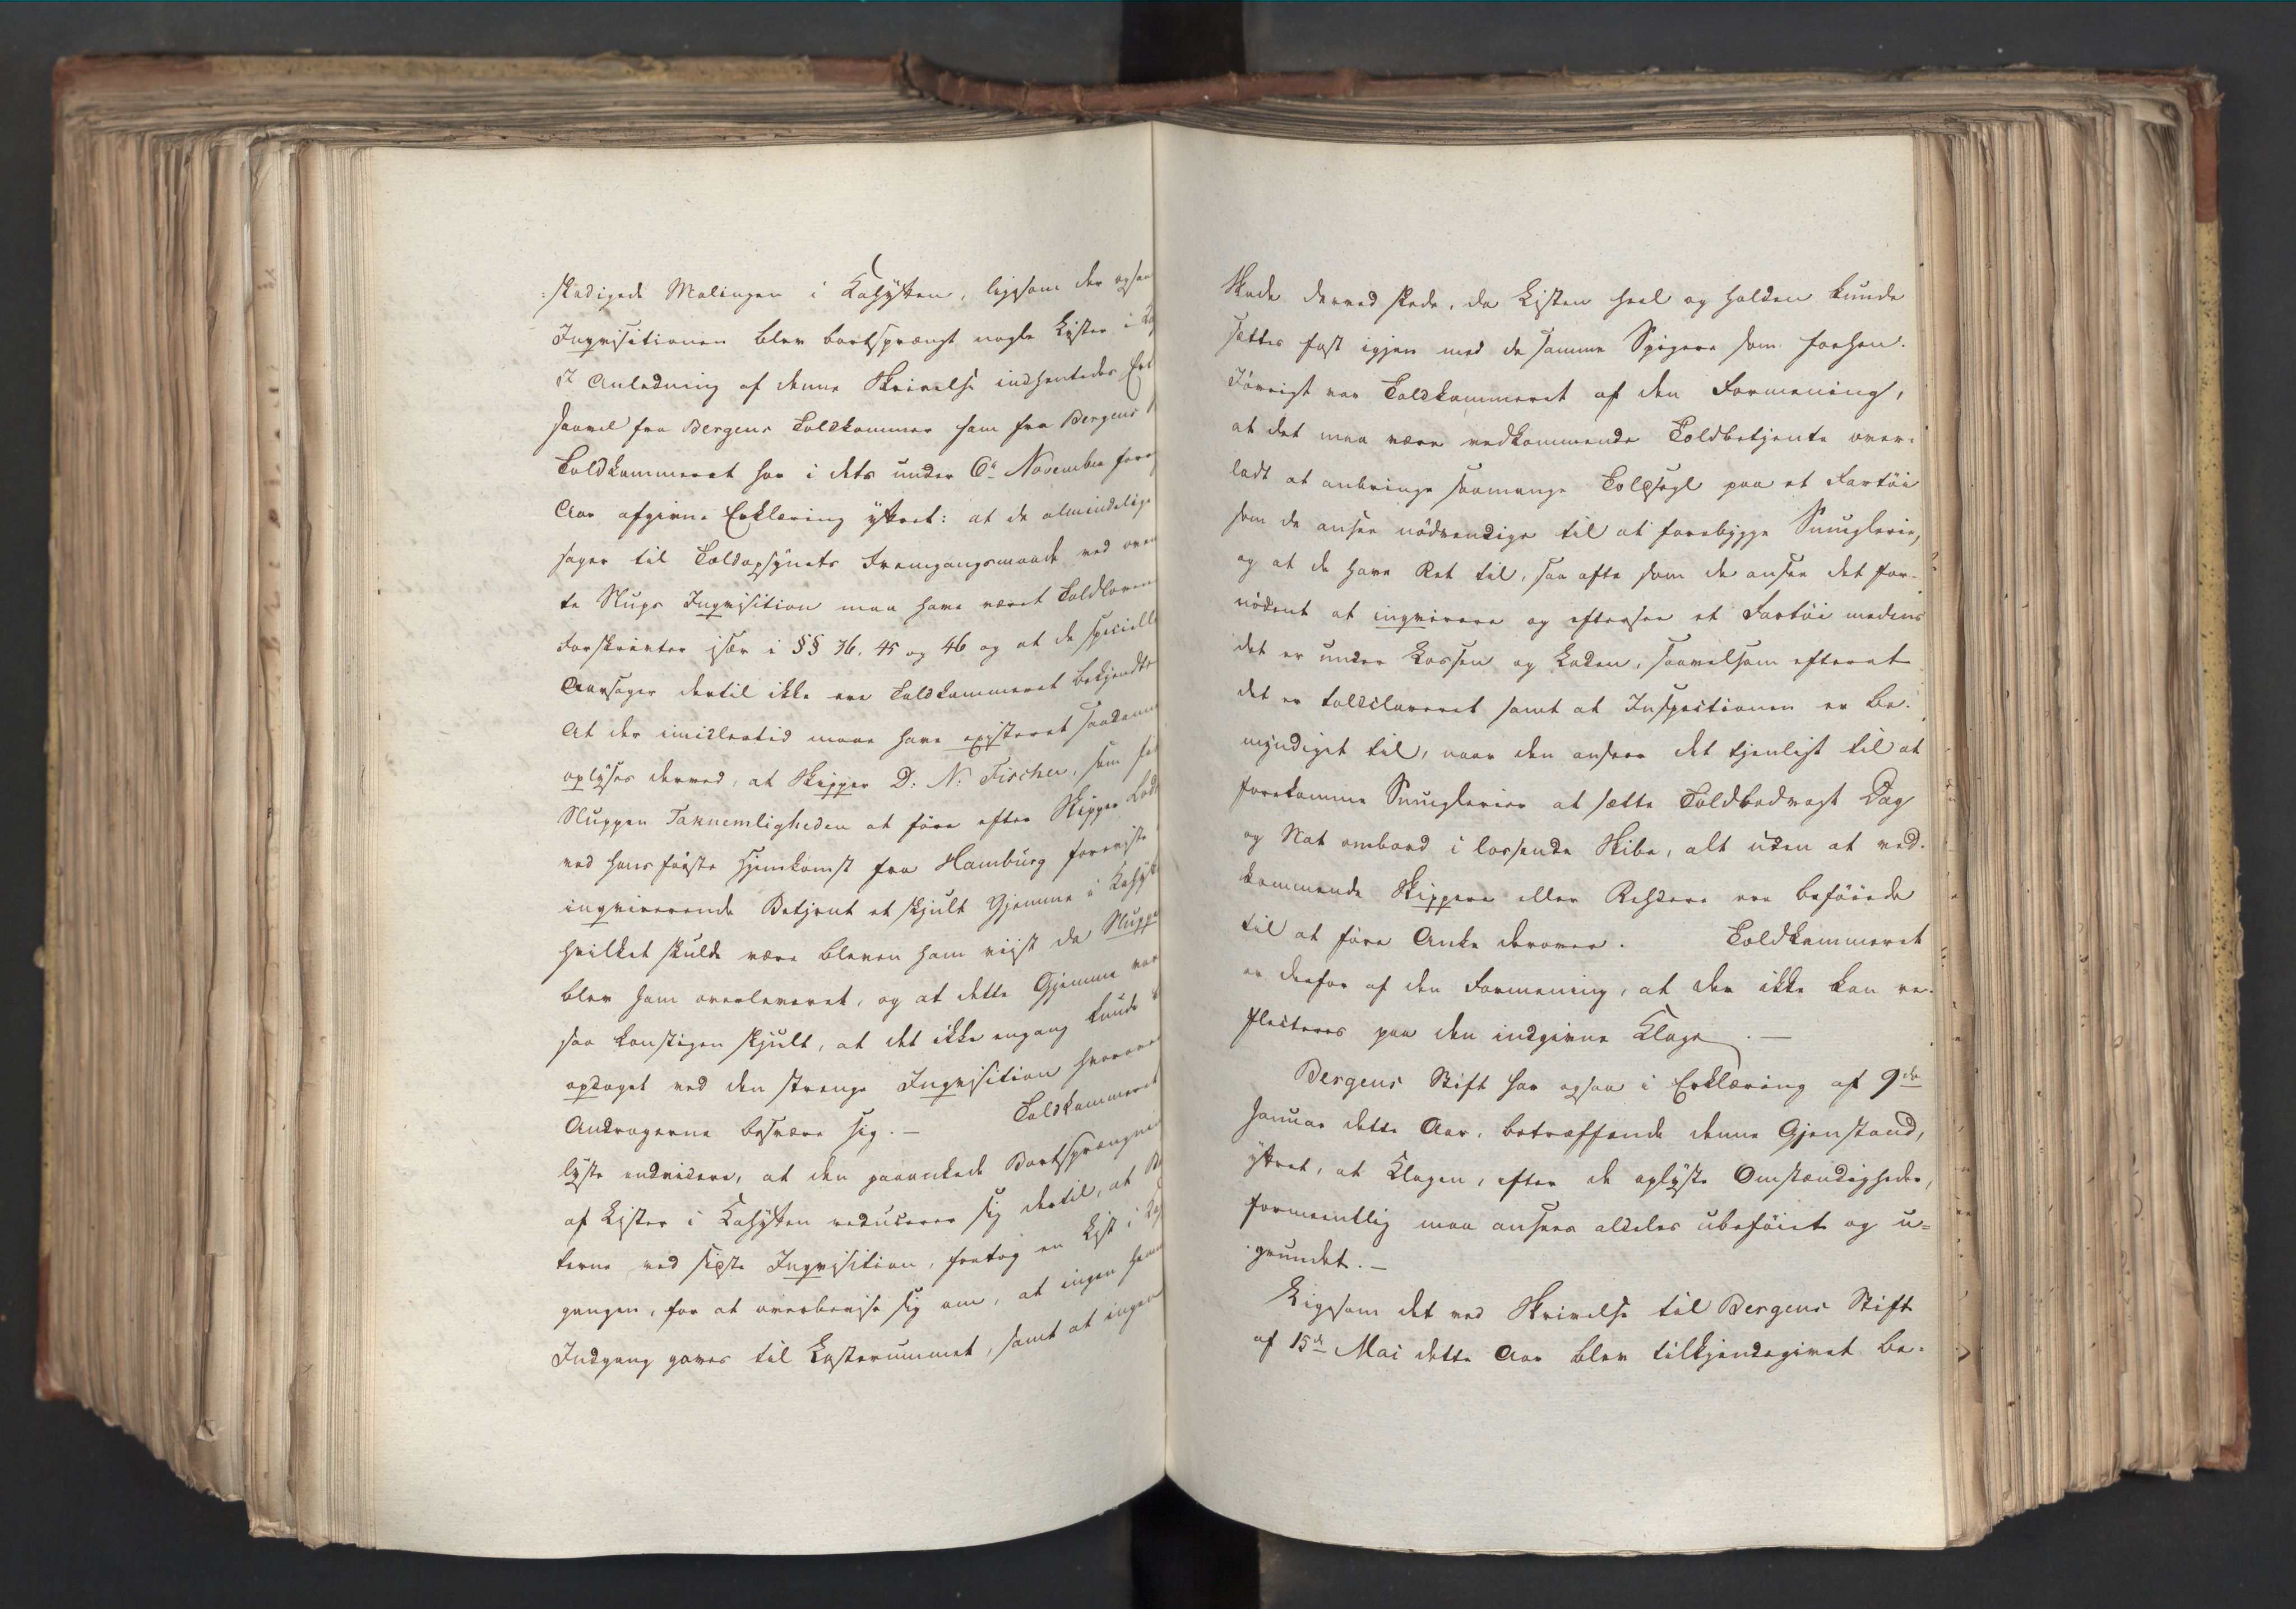 :skadigede Malingen i Kahytten, ligesom der ogsaa
Inqvisitionen blev bortsprængt nogle Lister i
I Anledning af denne Skrivelse indhentedes
saavel fra Bergens Toldkammer som fra Bergens
Toldkammeret har i dets under 6te November
Aar afgivne Erklæring yttret: at de almindelige
sager til Toldopsynets Fremgangsmaade ved
te Slups Inqvisition maa have været Toldloven
Forskrifter især i §§ 36. 45 og 46 og at de specielle
Aarsager dertil ikke ere Toldkammeret bekjendte
At der imidlertid maae have existeret saadanne
oplyses derved, at Skipper D: N: Fischer, som
Sluppen Taknemligheden at føre efter Skipper
ved hans første Hjemkomst fra Hamburg foreviste
inqvirerende Betjent et skjult Gjemme i
hvilket skulde være bleven ham viist da
blev ham overleveret, og at dette Gjemme var
saa konstigen skjult, at det ikke engang kunde
opdaget ved den strenge Inqvisition
Andragerne besvære sig.— Toldkammeret
lyste endvidere, at den paaankede
af Lister i Kahytten reducerer sig dertil, at
terne ved sidste Inqvisition, fratog en List i
gangen, for at overbevise sig om, at ingen
Indgang gaves til Lasterummet, samt at ingen
Skade derved skede, da Listen heel og holden kunde
sættes fast igjen med de samme Spigere som forhen.
Iøvrigt var Toldkammeret af den Formening,
at det maa være vedkommende Toldbetjente over-
ladt at anbringe saamange Toldsegl paa et Fartøi
som de ansee nødvendige til at forebygge Smuglerie,
og at de have Ret til, saa ofte som de ansee det for-
nødent at inqvirere og efterse et Fartøi medens
det er under Lossen og Laden, saavelsom efterat
det er toldclareret samt at Inspectionen er be-
myndiget til, naar den anseer det tjenligt til at
forekomme Smuglerier at sætte Toldbodvagt Dag
og Nat ombord i lossende Skibe, alt uden at ved-
kommende Skippere eller Rehdere ere beføiede
til at føre Anke derover. Toldkammeret
er derfor af den Formening, at der ikke kan re-
flecteres paa den indgivne Klage.—
Bergens Stift har ogsaa i Erklæring af 9de
Januar dette Aar, betræffende denne Gjenstand,
yttret, at Klagen, efter de oplyste Omstændigheder,
formeentlig maa ansees aldeles ubeføiet og u-
grundet.—
Ligesom det ved Skrivelse til Bergens Stift
af 15de Mai dette Aar blev tilkjendegivet be-